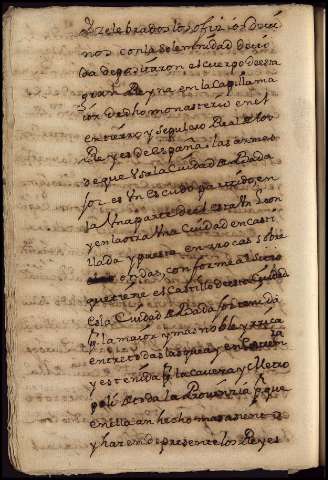 y zelebrados los ofizios divi
nos con la solemnidad devi
da depositaron el cuerpo de esta
gran Reyna en la Capilla ma
ior de dho monasterio en el
entierro y sepulcro Real de los
Reyes de España: las armas
de que usa la Ciudad de Bada
joz es Un escudo partido, en
la Una parte del esta Un Leon
y en la otra Una Ciudad encasti
llada y puesta en rocas sobre
ondas, conforme al sitio
que tiene el Castillo desta Ciudad
Es la Ciudad de Badajoz tenida
por la maior y mas noble y rica
entre todas las que ay en
y es tenida por la caveza y Metro
poli de toda la Provinzia porque
en ella an hecho mas asiento
y hazen de presente los Reyes